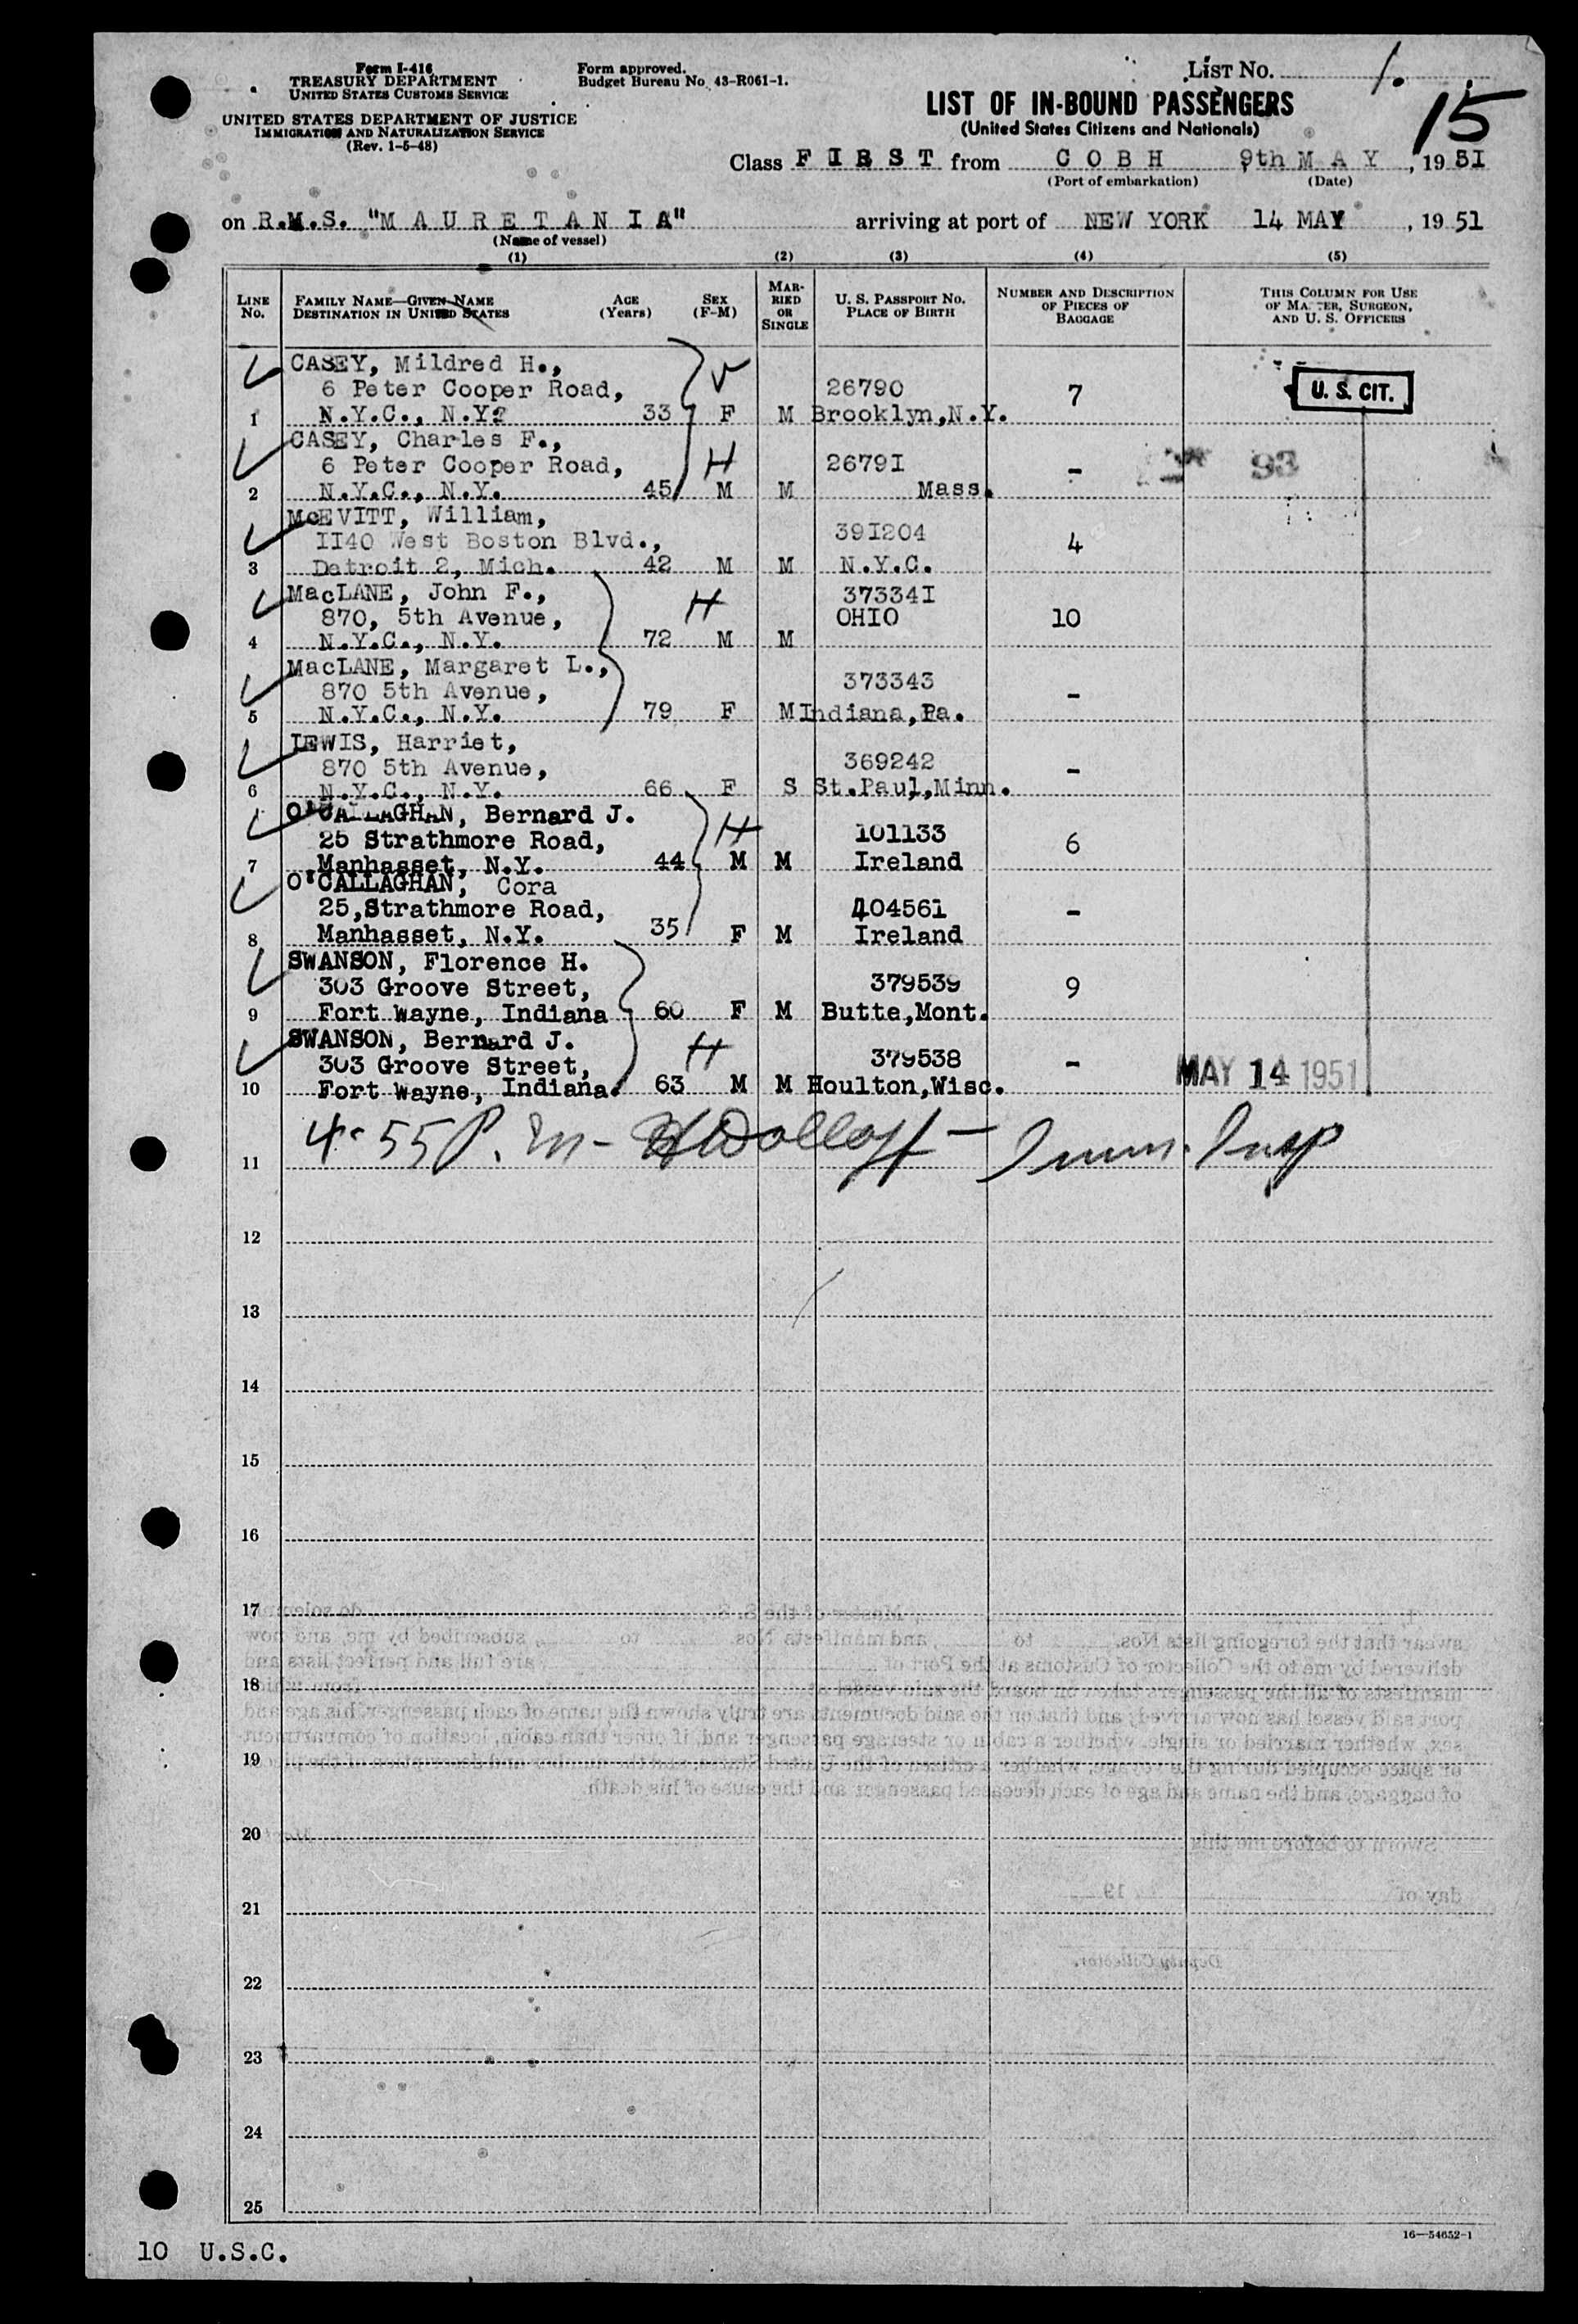 Form I-416
TREASURY DEPARTMENT
UNITED STATES CUSTOMS SERVICE
UNITED STATES DEPARTMENT OF JUSTICE
IMMIGRATION AND NATURALIZATION SERVICE
(Rev. 1-5-48)
Form approved.
Budget Bureau No. 43-R061-1.
LIST No. 1.
LIST OF IN-BOUND PASSENGERS
(United States Citizens and Nationals)
15
Class FIRST from COBH 9th MAY, 1951
(Port of embarkation) (Date)
on R.M.S. "MAURETANIA" arriving at port of NEW YORK 14 MAY, 1951
(Name of vessel)
(1) (2) (3) (4) (5)
LINE No. FAMILY NAME—GIVEN NAME DESTINATION IN UNITED STATES AGE (Years) SEX (F-M) MARRIED OR SINGLE U. S. PASSPORT NO. PLACE OF BIRTH NUMBER AND DESCRIPTION OF PIECES OF BAGGAGE THIS COLUMN FOR USE OF MASTER, SURGEON, AND U. S. OFFICERS
CASEY, Mildred H.,
6 Peter Cooper Road, 26790 7 U. S. CIT.
1 N.Y.C., N.Y? 33 F M Brooklyn,N.Y.
CASEY, Charles F.,
6 Peter Cooper Road, H 2679I - 93
2 N.Y.C., N.Y. 45 M M Mass.
McEVITT, William,
II40 West Boston Blvd., 39I204 4
3 Detroit 2, Mich. 42 M M N.Y.C.
MacLANE, John F., H 37334I
870, 5th Avenue, OHIO 10
4 N.Y.C., N.Y. 72 M M
MacLANE, Margaret L.,
870 5th Avenue, 373343 -
5 N.Y.C., N.Y. 79 F M Indiana,Pa.
LEWIS, Harriet,
870 5th Avenue, 369242 -
6 N.Y.C., N.Y. 66 F S St.Paul,Minn.
O'CALLAGHAN, Bernard J. H
25 Strathmore Road, 101133 6
7 Manhasset, N.Y. 44 M M Ireland
O'CALLAGHAN, Cora
25,Strathmore Road, 404561 -
8 Manhasset, N.Y. 35 F M Ireland
SWANSON, Florence H.
303 Groove Street, 379539 9
9 Fort Wayne, Indiana 60 F M Butte,Mont.
SWANSON, Bernard J. H
303 Groove Street, 379538 - MAY 14 1951
10 Fort Wayne, Indiana. 63 M M Houlton,Wisc.
11 4-55 P.M - Dolloff - Imm. Insp
12
13
14
15
16
17
18
19
20
21
22
23
24
25
16—54652-1
10 U.S.C.